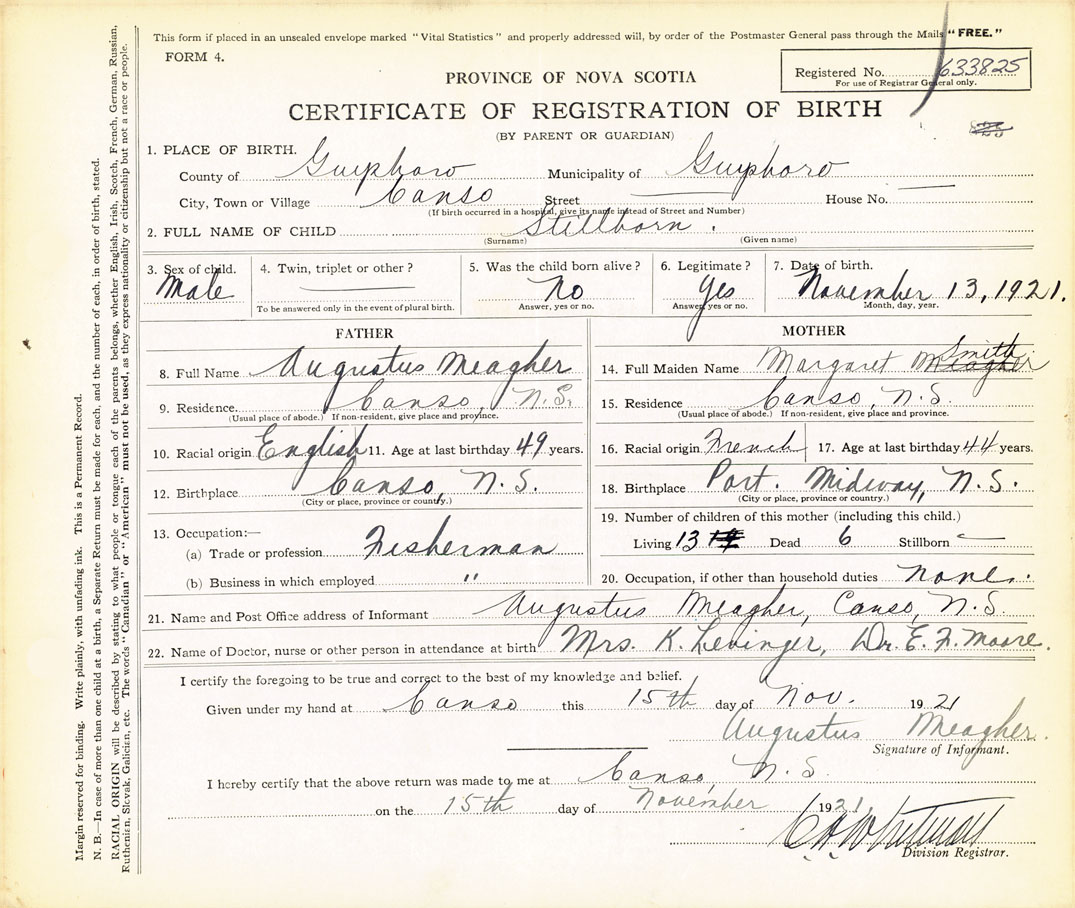 This form if placed in an unsealed envelope marked "Vital Statistics" and properly addressed will, by order of the Postmaster General pass through the Mails "FREE."
FORM 4.
Registered No. 633825
For use of Registrar General only.
PROVINCE OF NOVA SCOTIA
CERTIFICATE OF REGISTRATION OF BIRTH
(BY PARENT OR GUARDIAN)
1. PLACE OF BIRTH.
County of Guysboro Municipality of Guysboro
City, Town or Village Canso Street House No.
(If birth occurred in a hospital, give its name instead of Street and Number)
2. FULL NAME OF CHILD Stillborn.
(Surname) (Given name)
3. Sex of child. 4. Twin, triplet or other? 5. Was the child born alive? 6. Legitimate? 7. Date of birth.
Male No Yes November 13, 1921.
To be answered only in the event of plural birth. Answer, yes or no. Answer, yes or no. Month, day, year.
FATHER
8. Full Name Augustus Meagher
9. Residence Canso, N.S.
(Usual place of abode.) If non-resident, give place and province.
10. Racial origin English 11. Age at last birthday 49 years.
12. Birthplace Canso, N.S.
(City or place, province or country.)
13. Occupation:—
(a) Trade or profession Fisherman
(b) Business in which employed "
MOTHER
14. Full Maiden Name Margaret Meagher Smith
15. Residence Canso, N.S.
(Usual place of abode.) If non-resident, give place and province.
16. Racial origin French 17. Age at last birthday 44 years.
18. Birthplace Port. Midway, N.S.
(City or place, province or country.)
19. Number of children of this mother (including this child.)
Living 13 Dead 6 Stillborn
20. Occupation, if other than household duties none.
21. Name and Post Office address of Informant Augustus Meagher, Canso, N.S.
22. Name of Doctor, nurse or other person in attendance at birth Mrs. K. Levinger, Dr. E. F. Moore.
I certify the foregoing to be true and correct to the best of my knowledge and belief.
Given under my hand at Canso this 15th day of Nov. 1921
Augustus Meagher.
Signature of Informant.
I hereby certify that the above return was made to me at Canso, N.S.
on the 15th day of November 1921.
Division Registrar.
Margin reserved for binding. Write plainly, with unfading ink. This is a Permanent Record.
N. B.—In case of more than one child at a birth, a Separate Return must be made for each, and the number of each, in order of birth, stated.
RACIAL ORIGIN will be described by stating to what people or tongue each of the parents belongs, whether English, Irish, Scotch, French, German, Russian,
Ruthenian, Slovak, Galician, etc. The words "Canadian" or "American" must not be used, as they express nationality or citizenship but not a race or people.